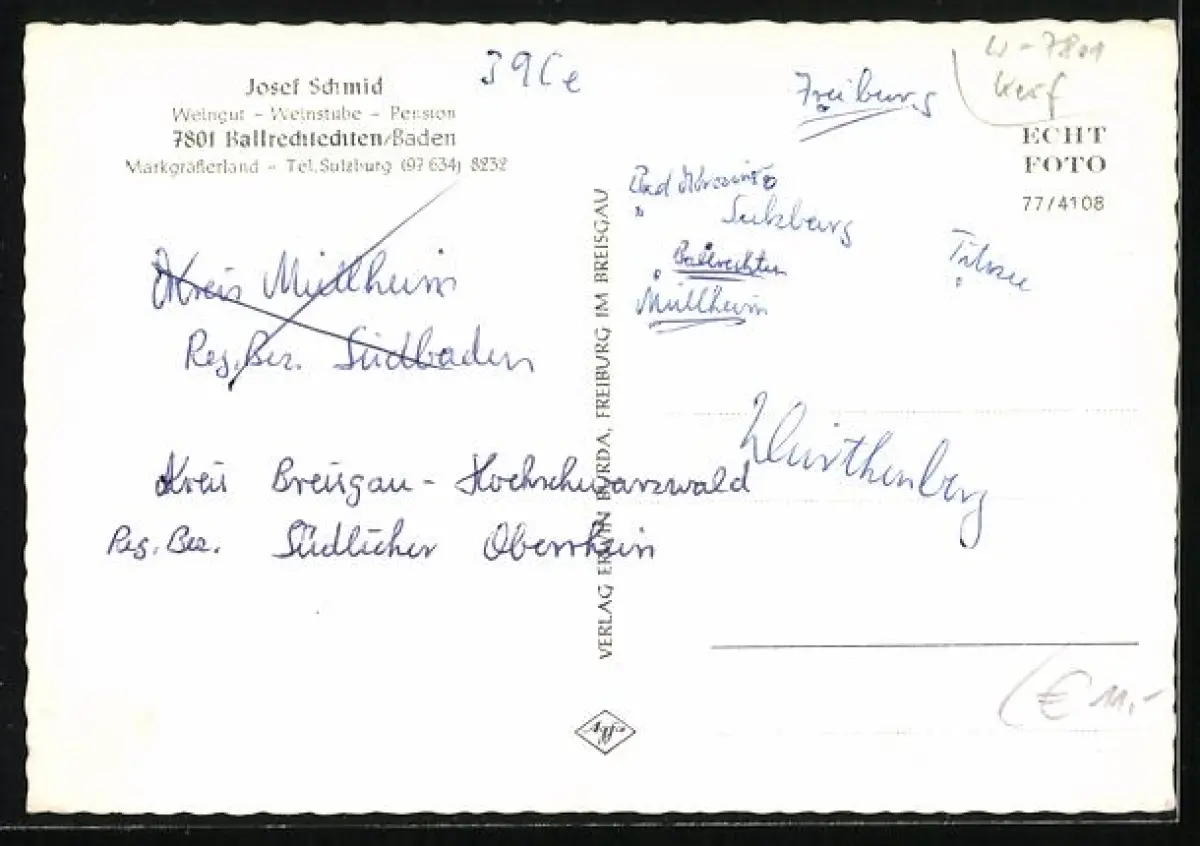 Josef Schmid
Weingut - Weinstube - Pension
7801 Ballrechtechten/Baden
Markgräflerland - Tel. Sulzburg (07 634) 8232
39Ce
Kreis Müllheim
Reg. Bez. Südbaden
Kreis Breisgau - Hochschwarzwald
Reg. Bez. Südlicher Oberrhein
VERLAG ERWIN BURDA, FREIBURG IM BREISGAU
Agfa
W-7801
Freiburg
ECHT
FOTO
77/4108
Bad Krozingen
Sulzburg
Ballrechten
Müllheim
Titisee
Würthenberg
€ 11,-